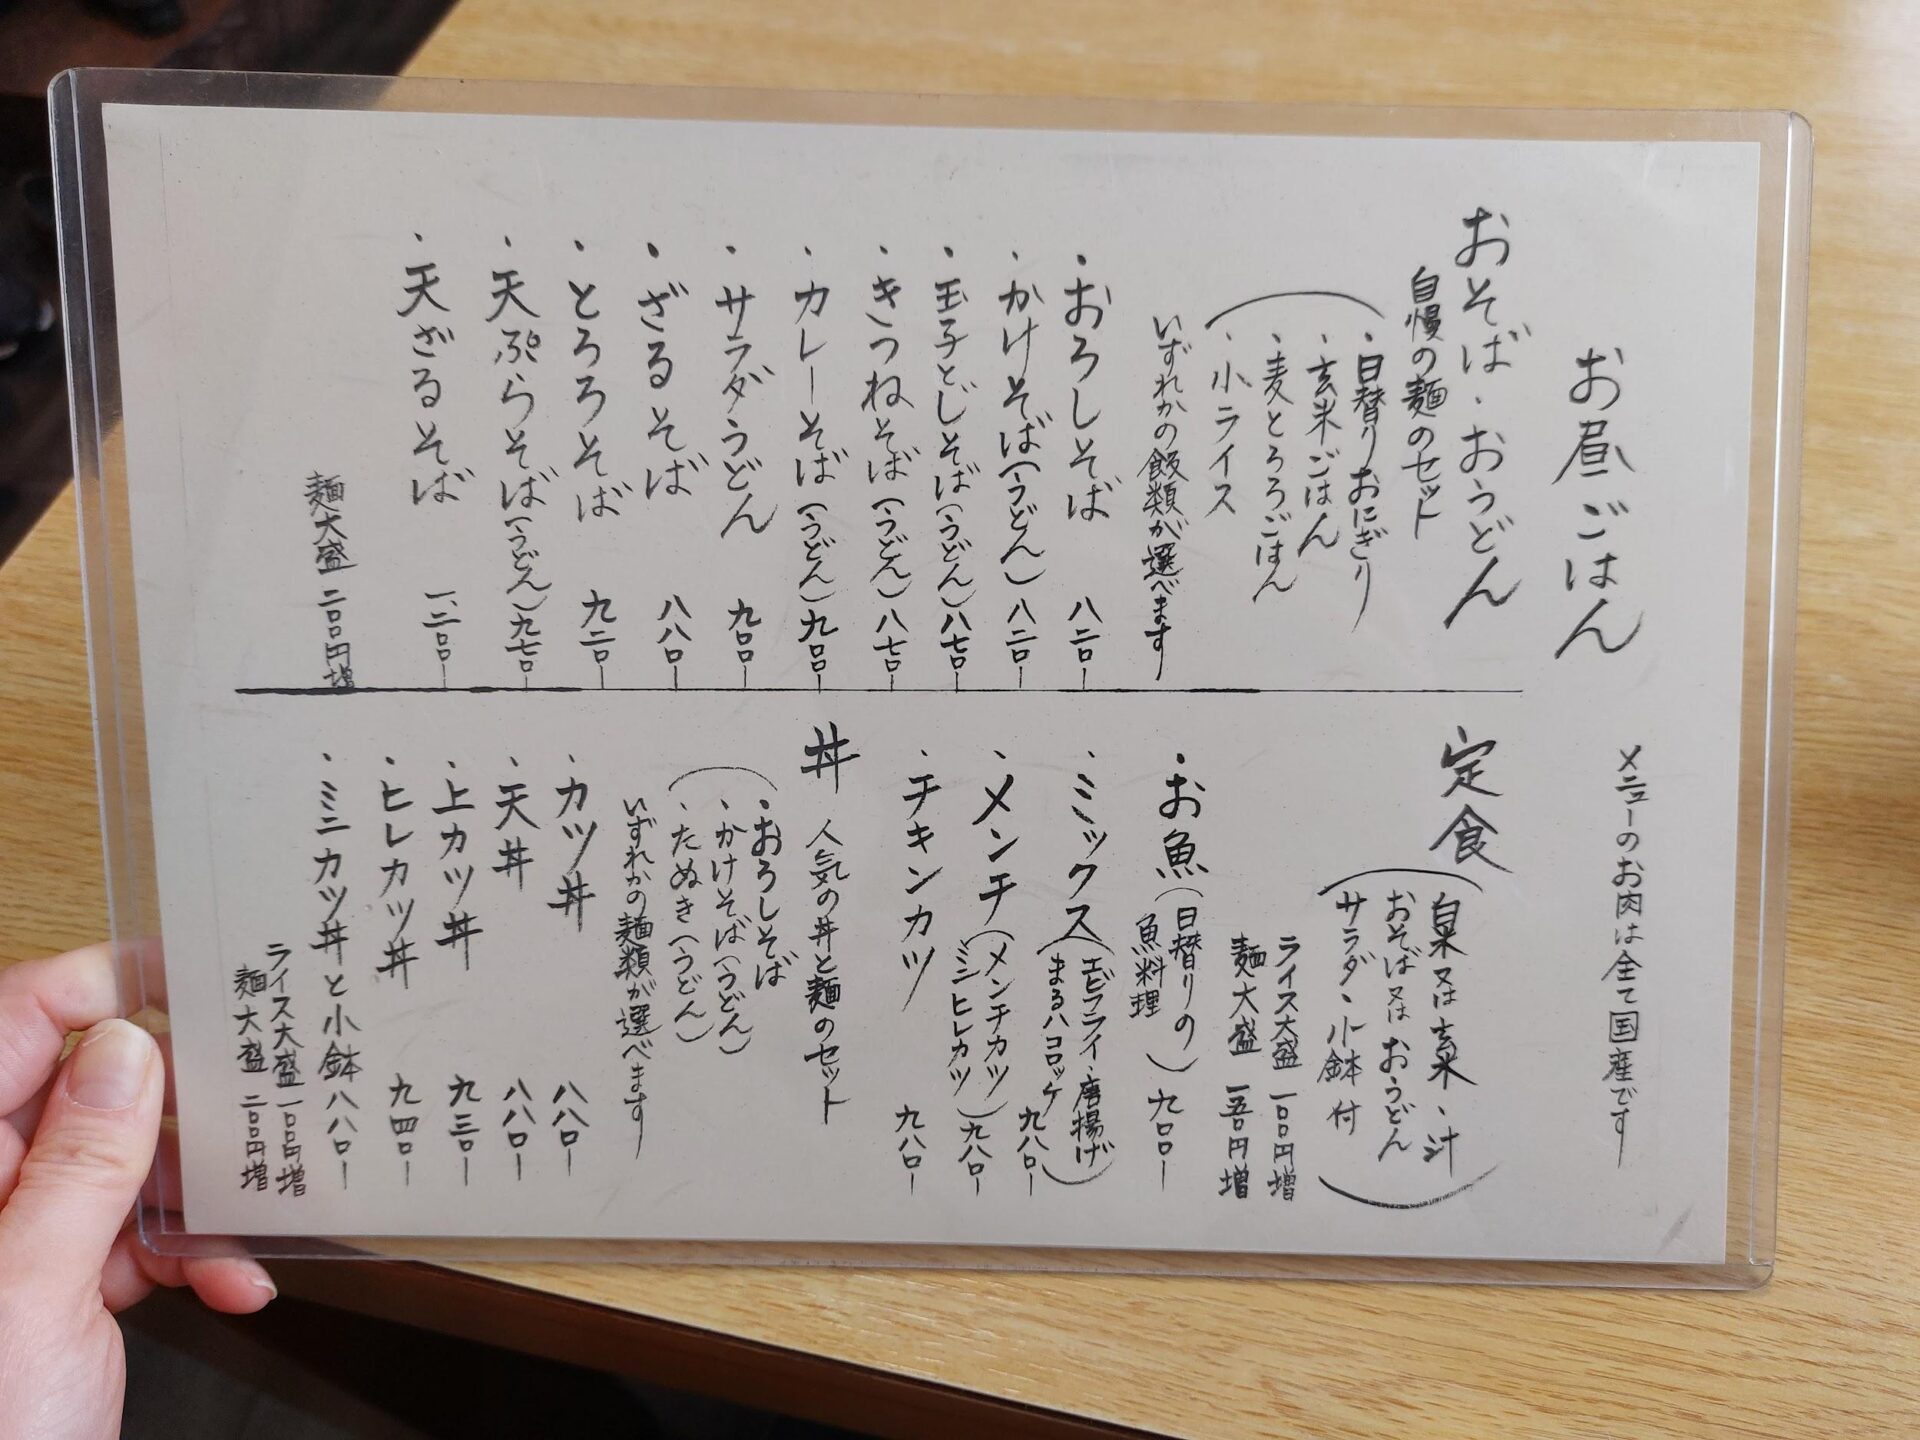 お昼ごはん
メニューのお肉は全て国産です
おそば・おうどん
自慢の麺のセット
・日替りおにぎり
・玄米ごはん
・麦とろろごはん
・小ライス
いずれかの飯類が選べます
・おろしそば 八二〇-
・かけそば(うどん) 八二〇-
・玉子とじそば(うどん) 八七〇-
・きつねそば(うどん) 八七〇-
・カレーそば(うどん) 九〇〇-
・サラダうどん 九〇〇-
・ざるそば 八八〇-
・とろろそば 九二〇-
・天ぷらそば(うどん) 九七〇-
・天ざるそば
麺大盛 二〇〇円増
定食
(白米又は玄米・汁
おそば又はおうどん
サラダ・小鉢 付)
ライス大盛 一〇〇円増
麺大盛 一五〇円増
・お魚(日替りの
魚料理) 九〇〇-
・ミックス(エビフライ・唐揚げ
まるハコロッケ) 九八〇-
・メンチ(メンチカツ
ミニヒレカツ) 九八〇-
・チキンカツ 九八〇-
丼 人気の丼と麺のセット
・おろしそば
・かけそば(うどん)
・たぬき(うどん)
いずれかの麺類が選べます
・カツ丼 八八〇-
・天丼 八八〇-
・上カツ丼 九三〇-
・ヒレカツ丼 九四〇-
・ミニカツ丼と小鉢 八八〇-
ライス大盛 一〇〇円増
麺大盛 二〇〇円増